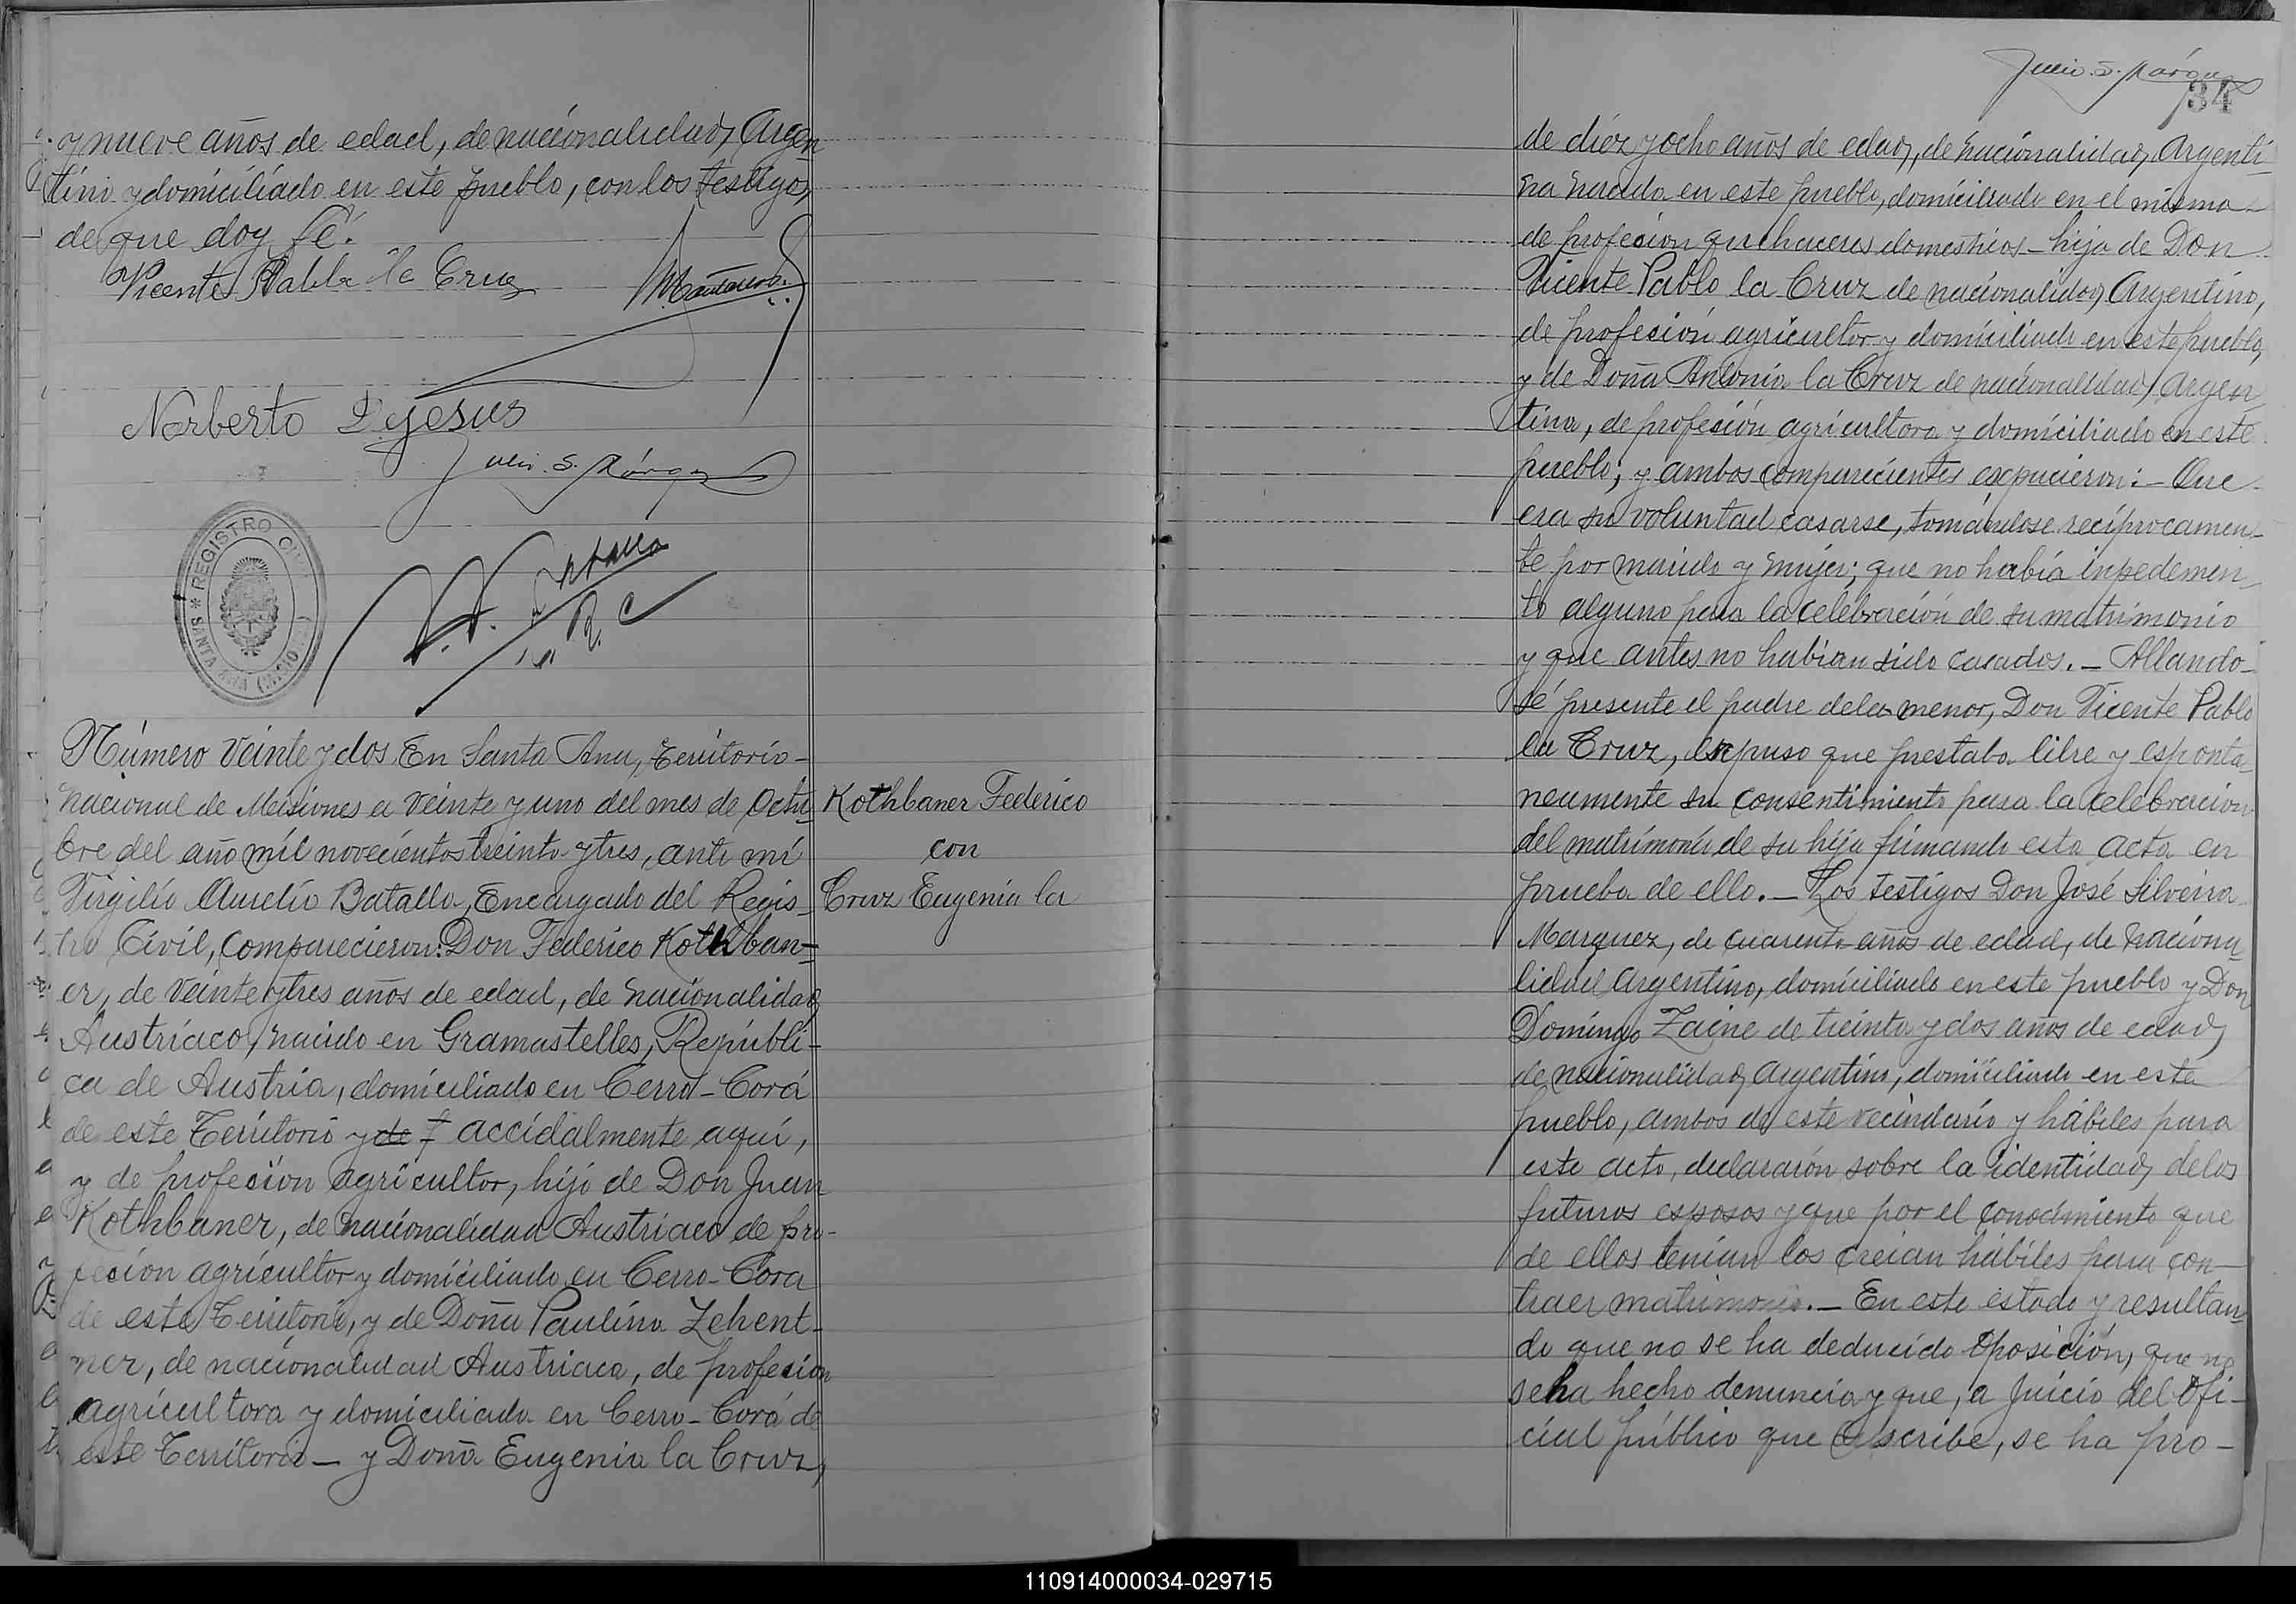 y nueve años de edad, de nacionalidad Argen
tino y domiciliado en este pueblo, con los testigos,
de que doy fé.
Vicente Pablo la Cruz
Norberto Dejesus
Julio. S. Márquez
REGISTRO CIVIL
SANTA ANA
R. C
Número veinte y dos En Santa Ana, Territorio-
Nacional de Misiones a veinte y uno del mes de Octu-
bre del año mil novecientos treinta y tres, ante mí
Virgilio Aurelio Batalla, Encargado del Regis-
tro Civil, comparecieron: Don Federico Kothban-
er, de veinte y tres años de edad, de nacionalidad
Austríaco, nacido en Gramastelles, Repúbli-
ca de Austria, domiciliado en Cerro-Corá
de este Territorio y de accidalmente aquí,
y de profesión agricultor, hijo de Don Juan
Kothbaner, de nacionalidad Austriaco de pro-
fesion agricultor y domiciliado en Cerro-Cora
de este Territorio, y de Doña Paulina Zehent-
ner, de nacionalidad Austriaca, de profesion
agricultora y domiciliada en Cerro-Corá de
este Territorio — y Doña Eugenia la Cruz,
Kothbaner Federico
con
Cruz Eugenia la
Julio. S. Márquez
34
de diez y ocho años de edad, de nacionalidad Argenti-
na nacida en este pueblo, domiciliada en el mismo-
de profesión quehaceres domesticos - hija de Don
Vicente Pablo la Cruz de nacionalidad Argentino,
de profesión agricultor y domiciliado en este pueblo,
y de Doña Antonia la Cruz de nacionalidad Argen
tina, de profesión agricultora y domiciliada en este
pueblo; y ambos comparecientes expucieron: - Que
era su voluntad casarse, tomándose recíprocamen-
te por marido y mujer; que no había inpedemen-
to alguno para la celebración de su matrimonio
y que antes no habian sido casados. - Allando-
sé presente el padre de la menor, Don Vicente Pablo
la Cruz, expuso que prestaba libre y esponta-
neamente su consentimiento para la celebracion
del matrimonio de su hija firmando esta acta en
prueba de ello. - Los testigos Don José Silveira
Marquez, de cuarenta años de edad, de naciona-
lidad Argentino, domiciliado en este pueblo y Don
Domingo Zaine de treinta y dos años de edad,
de nacionalidad Argentino, domiciliado en este
pueblo, ambos de este vecindario y hábiles para
este acto, declararón sobre la identidad de los
futuros esposos y que por el conocimiento que
de ellos tenian los creian hábiles para con-
traer matrimonio. - En este estado y resultan-
do que no se ha deducido oposición, que no
se ha hecho denuncia y que, a juicio del Ofi-
cial público que suscribe, se ha pro-
110914000034-029715